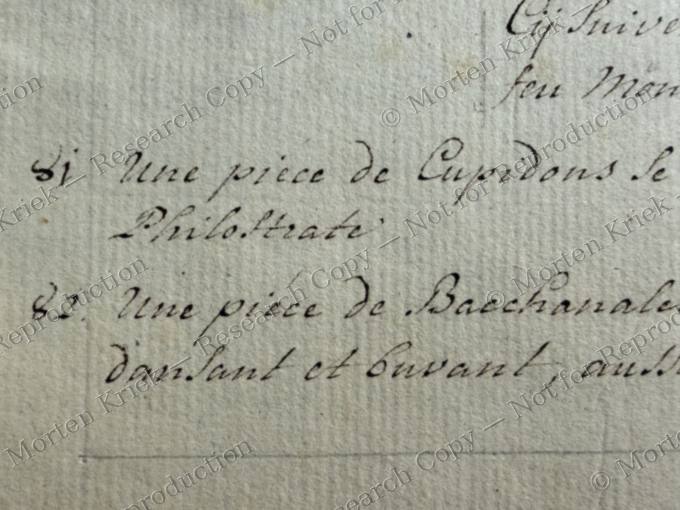 Cÿ Suive
feu Mon
81 Une piece de Cupidons se
Philostrate
82. Une piéce de Bacchanales
dansant et buvant, auss
© Morten Kriek — Research Copy — Not for Reproduction